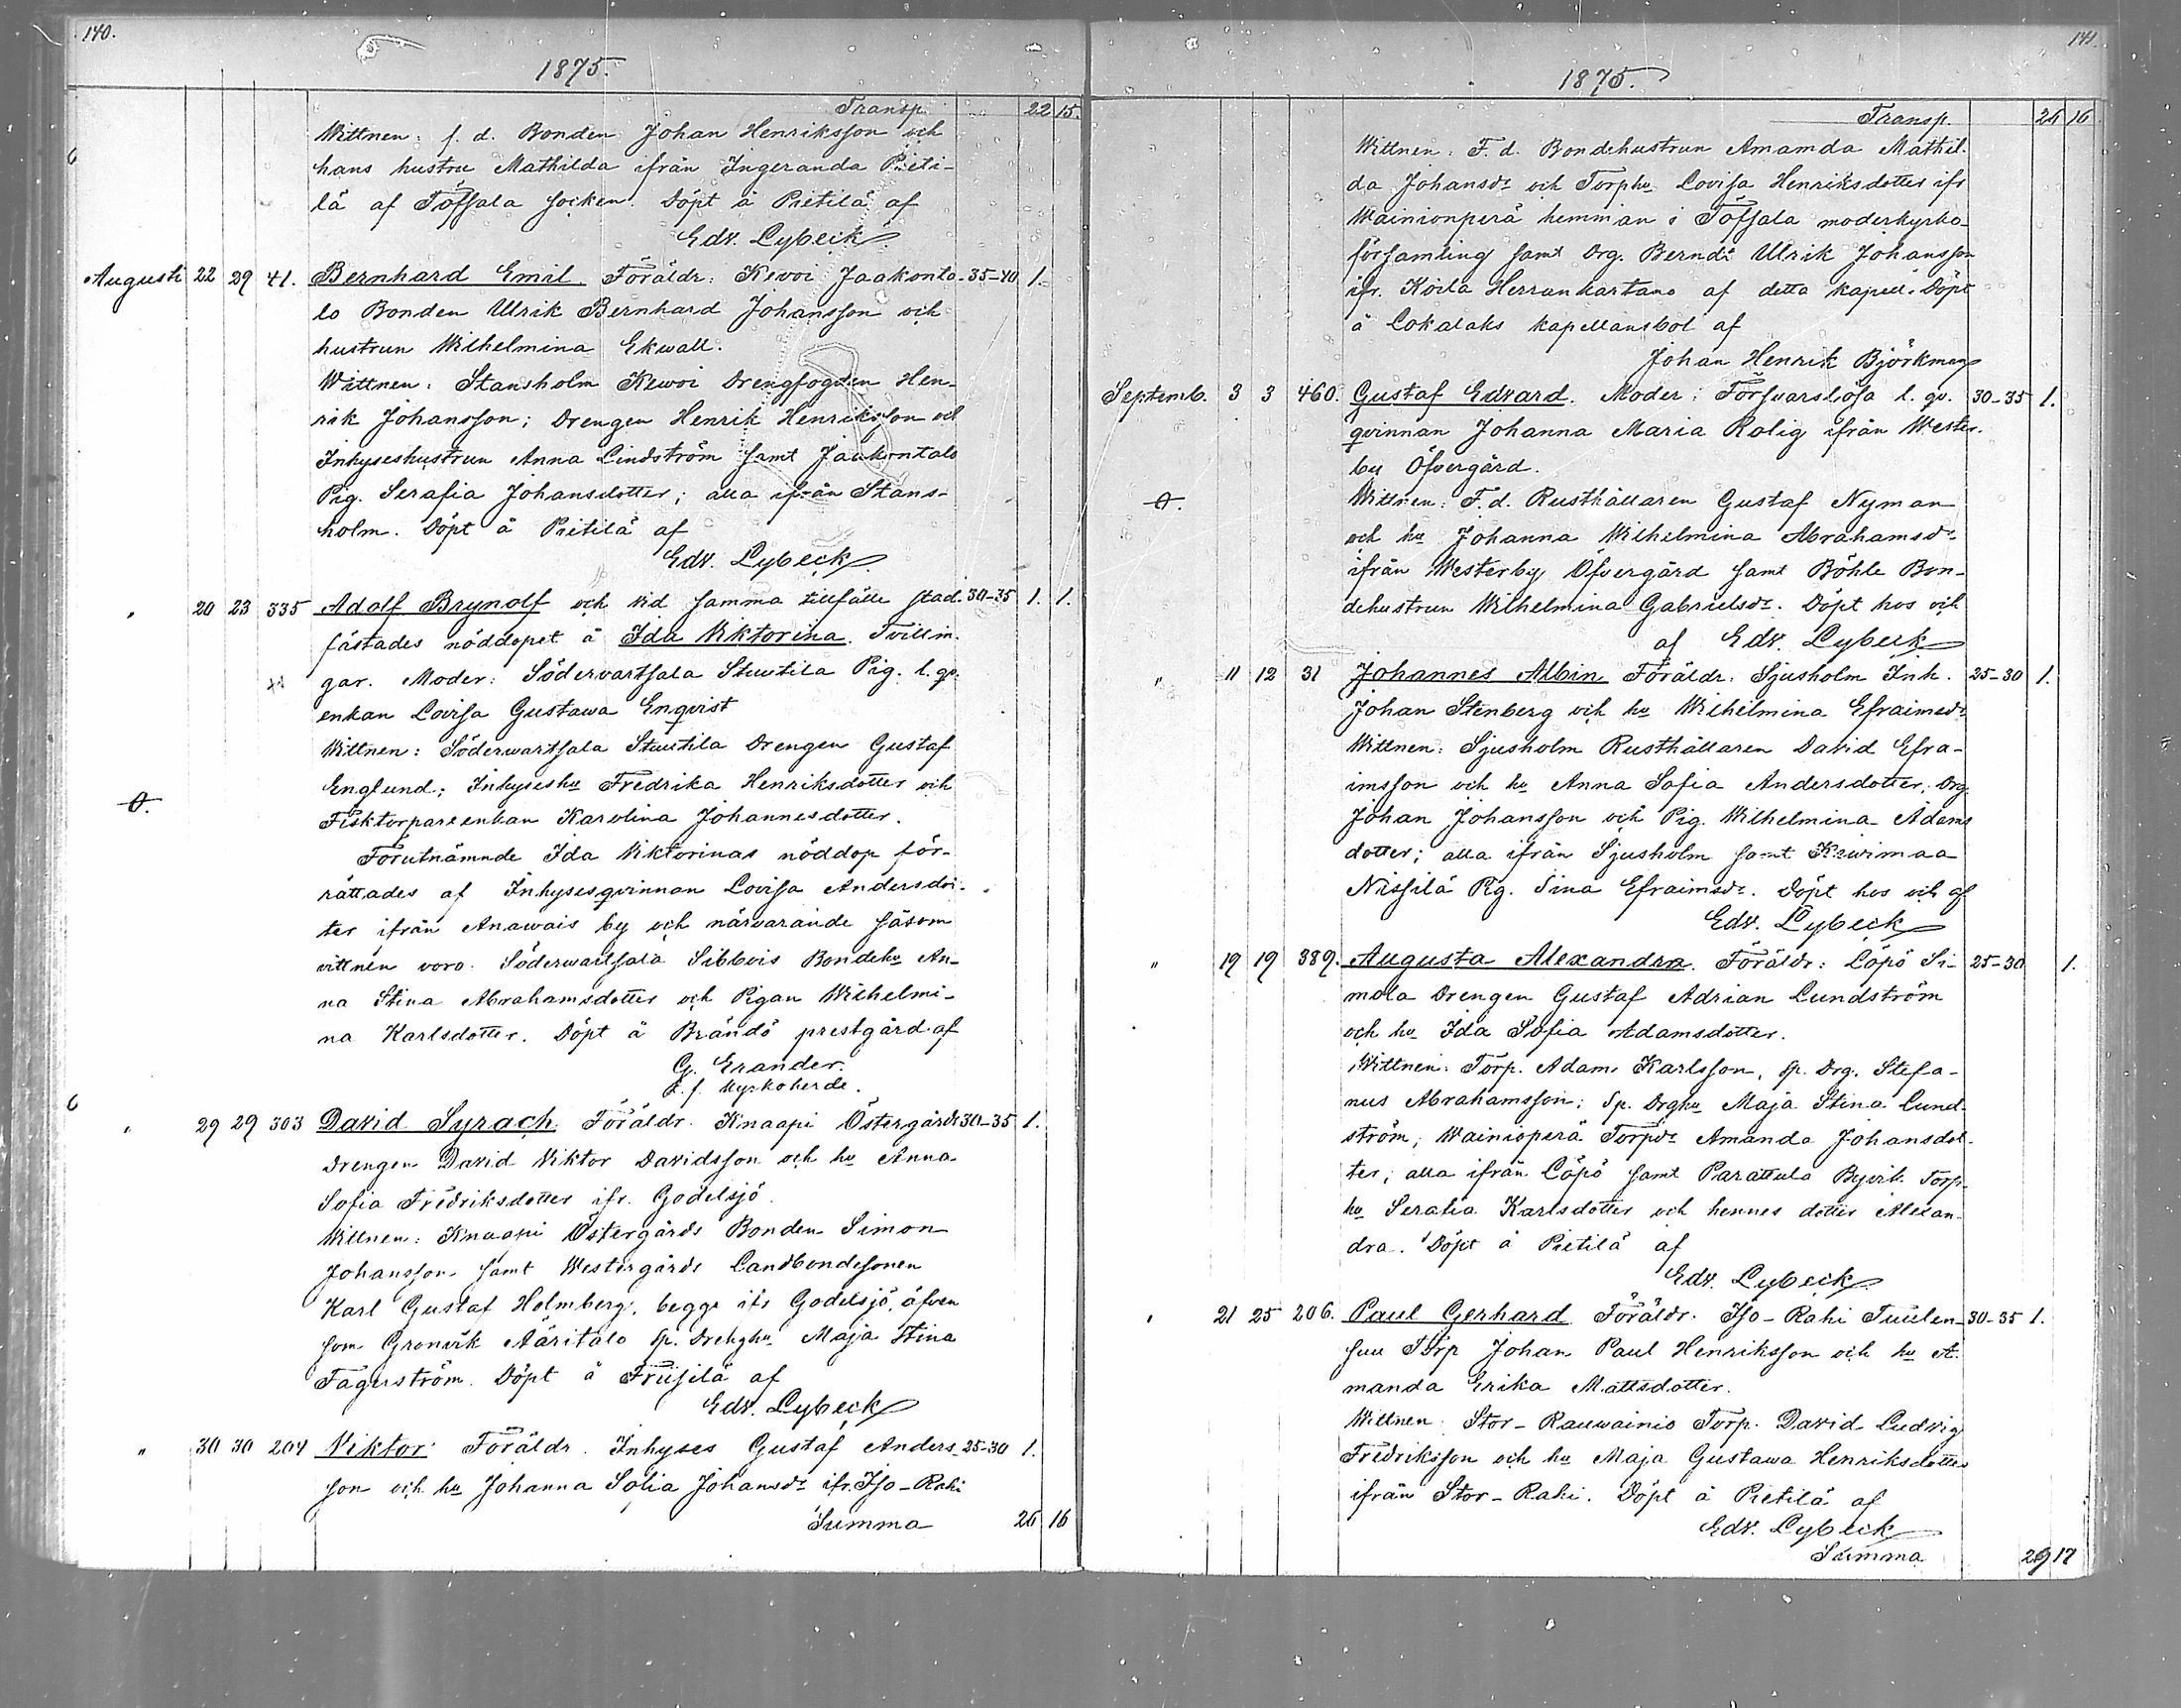 140.
1875.
Transp. 22 15.
Wittnen: f. d. Bonden Johan Henriksson och
hans hustru Mathilda ifrån Ingeranda Pieti-
lä af Töfsala socken. Döpt å Pietilä af
Edv. Lybeck.
Augusti 22 29 41. Bernhard Emil. Föräldr: Kevoi Jaakonta- 35-40 1.
lo Bonden Ulrik Bernhard Johansson och
hustrun Wilhelmina Ekwall.
Wittnen: Stansholm Kewoi Drengfogden Hen-
rik Johansson; Drengen Henrik Henriksson och
Inhyseshustrun Anna Lindström samt Jaakontalo
Pig. Serafia Johansdotter; alla ifrån Stans-
holm. Döpt å Pietilä af
Edv. Lybeck.
" 20 23 335 Adolf Brynolf och vid samma tillfälle stad- 30-35 1. 1.
fästades nöddopet å Ida Viktorina. Tvillin-
gar. Moder: Södervartsala Stuutila Pig. l. qv.
enkan Lovisa Gustawa Enqvist
Wittnen: Söderwartsala Stuutila Drengen Gustaf
Englund; Inhyseshu Fredrika Henriksdotter och
Fisktorpareenkan Karolina Johannesdotter.
Förutnämnde Ida Viktorinas nöddop för-
rättades af Inhysesqvinnan Lovisa Andersdot-
ter ifrån Anawais by och närvarande såsom
vittnen voro Söderwartsala Sibbois Bondehu An-
na Stina Abrahamsdotter och Pigan Wilhelmi-
na Karlsdotter. Döpt å Brändö prestgård af
G. Erander.
t. f. kyrkoherde.
" 29 29 303 David Syrach. Föräldr. Knaapi Östergårds 30-35 1.
drengen David Viktor Davidsson och hu Anna
Sofia Fredriksdotter ifr. Godelsjö.
Wittnen: Knaapi Östergårds Bonden Simon
Johansson samt Westergårds Landbondesonen
Karl Gustaf Holmberg, begge ifr Godelsjö, äfven
som Gronvik Ääritalo Sp. Drenghu Maja Stina
Fagerström. Döpt å Friisilä af
Edv. Lybeck
" 30 30 204 Viktor: Föräldr. Inhyses Gustaf Anders- 25-30 1.
son och hu Johanna Sofia Johansdr ifr. Iso-Rahi
Summa 26 16
141.
1875.
Transp. 26 16
Wittnen: F. d. Bondehustrun Amanda Mathil-
da Johansdr och Torphu Lovisa Henriksdotter ifr
Wainionperä hemman i Töfsala moderkyrko-
församling samt Drg. Berndt Ulrik Johansson
ifr. Koila Herrankartano af detta kapell. Döpt
å Lokalaks kapellansbol af
Johan Henrik Björkman
Septemb. 3 3 460. Gustaf Edvard. Moder: Försvarslösa l. qv. 30-35 1.
qvinnan Johanna Maria Rolig ifrån Wester-
by Öfvergård.
Wittnen: F.d. Rusthållaren Gustaf Nyman
och hu Johanna Wilhelmina Abrahamsdr
ifrån Westerby Öfvergård samt Böhle Bon-
dehustrun Wilhelmina Gabrielsdr. Döpt hos och
af Edv. Lybeck
" 11 12 31 Johannes Albin Föräldr. Sjusholm Inh. 25-30 1.
Johan Stenberg och hu Wilhelmina Efraimsdr
Wittnen: Sjusholm Rusthållaren David Efra-
imsson och hu Anna Sofia Andersdotter; Drg.
Johan Johansson och Pig. Wilhelmina Adams
dotter; alla ifrån Sjusholm samt Kewimaa
Nissilä Pig. Sina Efraimsdr. Döpt hos och af
Edv. Lybeck
" 19 19 389. Augusta Alexandra. Föräldr: Löpö Si- 25-30 1.
mola Drengen Gustaf Adrian Lundström
och hu Ida Sofia Adamsdotter.
Wittnen: Torp. Adam Karlsson, Sp. Drg. Stefa-
nus Abrahamsson; Sp. Drghu Maja Stina Lund-
ström; Wainioperä Torpdr Amanda Johansdot-
ter; alla ifrån Löpö samt Parattula Torp-
hu Serafia Karlsdotter och hennes dotter Alexan-
dra. Döpt å Pietilä af
Edv. Lybeck
" 21 25 206. Paul Gerhard Föräldr. Iso-Rahi Tuulen- 30-35 1.
suu Torp Johan Paul Henriksson och hu A-
manda Erika Mattsdotter.
Wittnen: Stor-Rauwainio Torp. David Ludvig
Fredriksson och hu Maja Gustawa Henriksdotter
ifrån Stor-Rahi. Döpt å Pietilä af
Edv. Lybeck
Summa 29 17